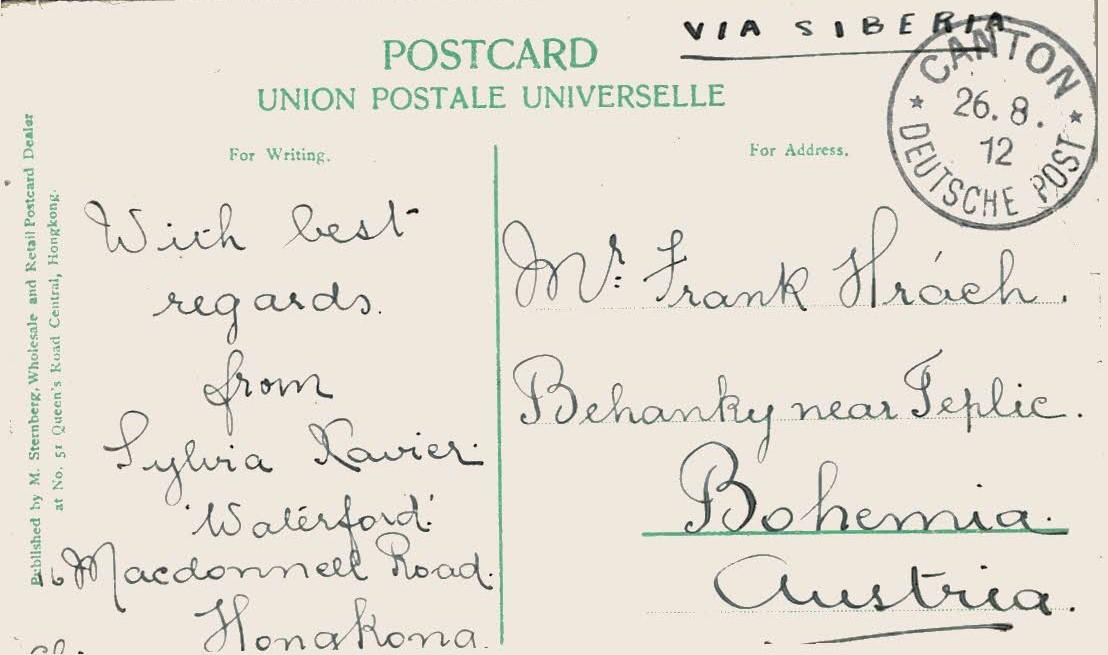 VIA SIBERIA
POSTCARD
UNION POSTALE UNIVERSELLE
CANTON
26. 8.
12
DEUTSCHE POST
For Writing.
For Address.
Published by M. Sternberg, Wholesale and Retail Postcard Dealer
at No. 51 Queen's Road Central, Hongkong.
With best
regards.
from
Sylvia Xavier.
'Waterford'
16 Macdonnell Road.
Hongkong.
Mr. Frank Hrách.
Behanky near Teplic.
Bohemia.
Austria.